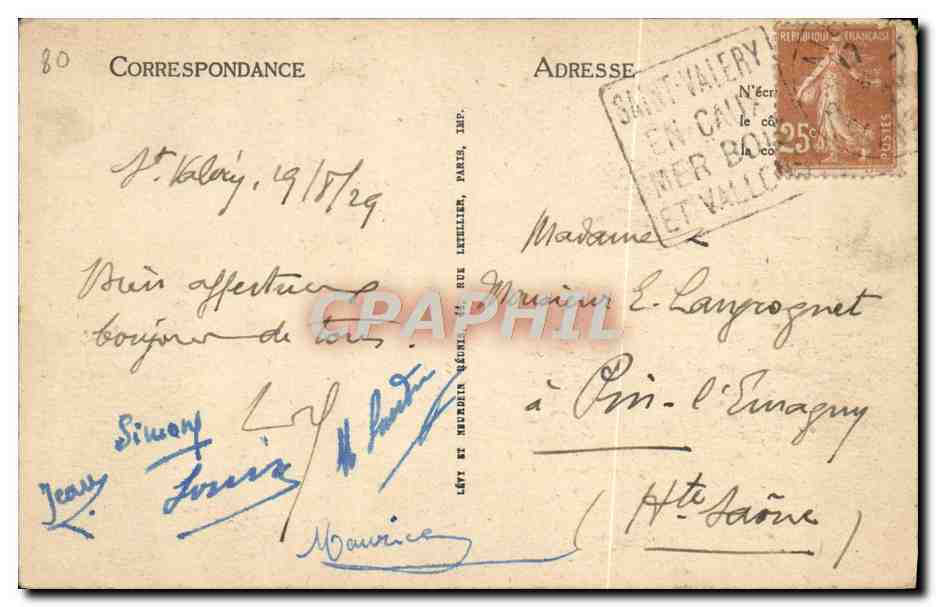 80
CORRESPONDANCE
St Valéry, 19/8/29
Bien affectueux
bonjour de tous.
Simone
Jean
Louise
Maurice
LÉVY ET NEURDEIN RÉUNIS, 44, RUE LETELLIER, PARIS, IMP.
ADRESSE
N'écri
le cô
la co
SAINT-VALERY
EN CAUX
MER BOIS
ET VALLONS
REPUBLIQUE FRANÇAISE
25c
POSTES
Madame
Monsieur E. Langrognet
à Pin-l'Emagny
(Hte Saône)
CPAPHIL